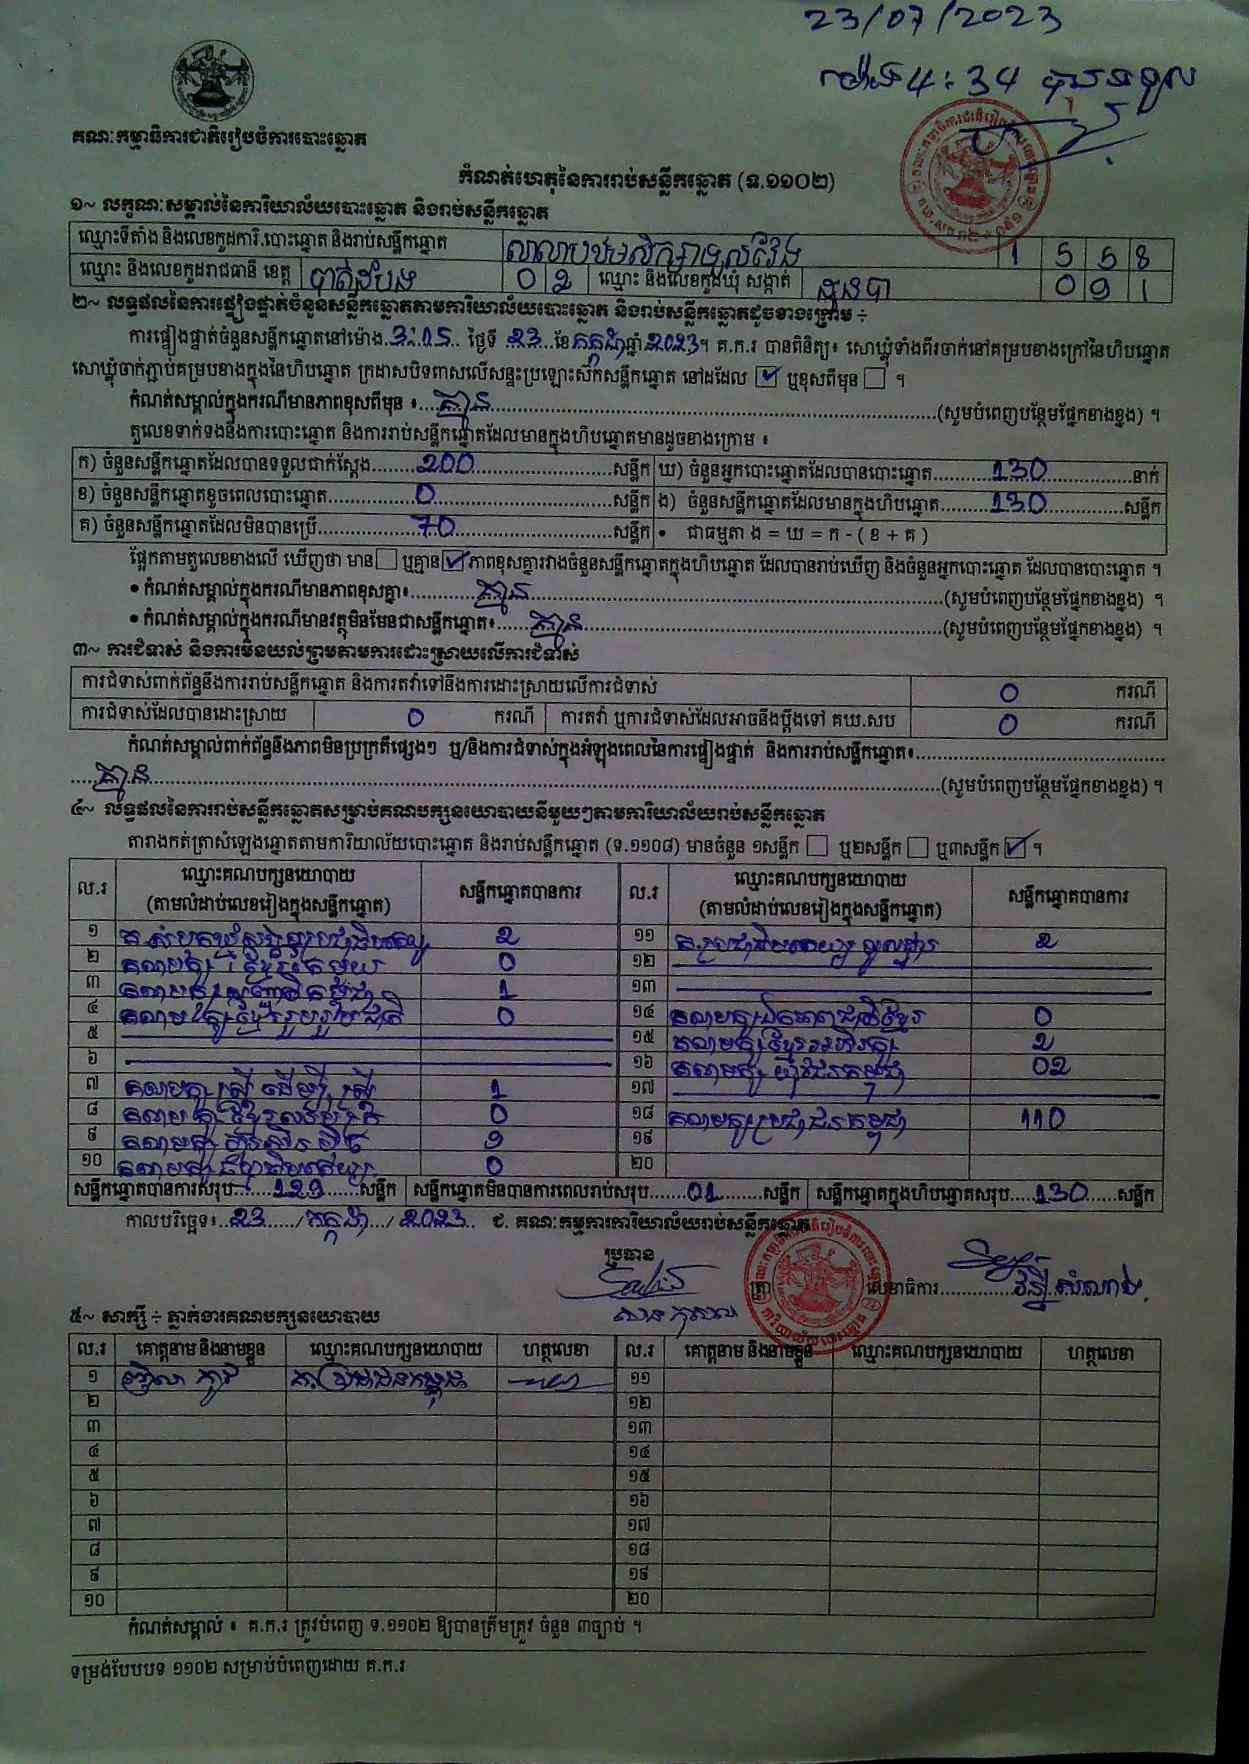 23/07/2023
ម៉ោង 4:34 បានទទួល
គណៈកម្មាធិការជាតិរៀបចំការបោះឆ្នោត
កំណត់ហេតុនៃការរាប់សន្លឹកឆ្នោត (ទ.១១០២)
១~ លក្ខណៈសម្គាល់នៃការិយាល័យបោះឆ្នោត និងរាប់សន្លឹកឆ្នោត
ឈ្មោះទីតាំង និងលេខកូដការិ.បោះឆ្នោត និងរាប់សន្លឹកឆ្នោត សាលាបឋមសិក្សាទួលវែង 1 5 5 8
ឈ្មោះ និងលេខកូដរាជធានី ខេត្ត បាត់ដំបង 0 2 ឈ្មោះ និងលេខកូដឃុំ សង្កាត់ ដូនបា 0 9 1
២~ លទ្ធផលនៃការផ្ទៀងផ្ទាត់ចំនួនសន្លឹកឆ្នោតតាមការិយាល័យបោះឆ្នោត និងរាប់សន្លឹកឆ្នោតដូចខាងក្រោម ÷
ការផ្ទៀងផ្ទាត់ចំនួនសន្លឹកឆ្នោតនៅម៉ោង 3:05 ថ្ងៃទី 23 ខែ កក្កដា ឆ្នាំ 2023។ គ.ក.រ បានពិនិត្យ៖ សោឃ្លុំទាំងពីរចាក់នៅគម្របខាងក្រៅនៃហិបឆ្នោត
សោឃ្លុំចាក់ភ្ជាប់គម្របខាងក្នុងនៃហិបឆ្នោត ក្រដាសបិទពាសលើសន្ទះប្រឡោះស៊កសន្លឹកឆ្នោត នៅដដែល ☑ ឬខុសពីមុន ☐ ។
កំណត់សម្គាល់ក្នុងករណីមានភាពខុសពីមុន ៖ គ្មាន (សូមបំពេញបន្ថែមផ្នែកខាងខ្នង) ។
តួលេខទាក់ទងនឹងការបោះឆ្នោត និងការរាប់សន្លឹកឆ្នោតដែលមានក្នុងហិបឆ្នោតមានដូចខាងក្រោម ៖
ក) ចំនួនសន្លឹកឆ្នោតដែលបានទទួលជាក់ស្តែង 200 សន្លឹក ឃ) ចំនួនអ្នកបោះឆ្នោតដែលបានបោះឆ្នោត 130 នាក់
ខ) ចំនួនសន្លឹកឆ្នោតខូចពេលបោះឆ្នោត 0 សន្លឹក ង) ចំនួនសន្លឹកឆ្នោតដែលមានក្នុងហិបឆ្នោត 130 សន្លឹក
គ) ចំនួនសន្លឹកឆ្នោតដែលមិនបានប្រើ 70 សន្លឹក • ជាធម្មតា ង = ឃ = ក - ( ខ + គ )
ផ្អែកតាមតួលេខខាងលើ ឃើញថា មាន ☐ ឬគ្មាន ☑ ភាពខុសគ្នារវាងចំនួនសន្លឹកឆ្នោតក្នុងហិបឆ្នោត ដែលបានរាប់ឃើញ និងចំនួនអ្នកបោះឆ្នោត ដែលបានបោះឆ្នោត ។
• កំណត់សម្គាល់ក្នុងករណីមានភាពខុសគ្នា៖ គ្មាន (សូមបំពេញបន្ថែមផ្នែកខាងខ្នង) ។
• កំណត់សម្គាល់ក្នុងករណីមានវត្ថុមិនមែនជាសន្លឹកឆ្នោត៖ គ្មាន (សូមបំពេញបន្ថែមផ្នែកខាងខ្នង) ។
៣~ ការជំទាស់ និងការមិនយល់ព្រមតាមការដោះស្រាយលើការជំទាស់
ការជំទាស់ពាក់ព័ន្ធនឹងការរាប់សន្លឹកឆ្នោត និងការតវ៉ាទៅនឹងការដោះស្រាយលើការជំទាស់ 0 ករណី
ការជំទាស់ដែលបានដោះស្រាយ 0 ករណី ការតវ៉ា ឬការជំទាស់ដែលអាចនឹងប្តឹងទៅ គឃ.សប 0 ករណី
កំណត់សម្គាល់ពាក់ព័ន្ធនឹងភាពមិនប្រក្រតីផ្សេងៗ ឬ/និងការជំទាស់ក្នុងអំឡុងពេលនៃការផ្ទៀងផ្ទាត់ និងការរាប់សន្លឹកឆ្នោត៖
គ្មាន (សូមបំពេញបន្ថែមផ្នែកខាងខ្នង) ។
៤~ លទ្ធផលនៃការរាប់សន្លឹកឆ្នោតសម្រាប់គណបក្សនយោបាយនីមួយៗតាមការិយាល័យរាប់សន្លឹកឆ្នោត
តារាងកត់ត្រាសំឡេងឆ្នោតតាមការិយាល័យបោះឆ្នោត និងរាប់សន្លឹកឆ្នោត (ទ.១១០៨) មានចំនួន ១សន្លឹក ☐ ឬ២សន្លឹក ☐ ឬ៣សន្លឹក ☑ ។
ល.រ ឈ្មោះគណបក្សនយោបាយ (តាមលំដាប់លេខរៀងក្នុងសន្លឹកឆ្នោត) សន្លឹកឆ្នោតបានការ ល.រ ឈ្មោះគណបក្សនយោបាយ (តាមលំដាប់លេខរៀងក្នុងសន្លឹកឆ្នោត) សន្លឹកឆ្នោតបានការ
១ គ.សំបុកឃ្មុំសង្គមប្រជាធិបតេយ្យ 2 ១១ គ.ប្រជាធិបតេយ្យ 2
២ គណបក្ស ខ្មែរតែមួយ 0 ១២
៣ គណបក្ស កម្ពុជា 1 ១៣
៤ គណបក្សខ្មែររួបរួមជាតិ 0 ១៤ គណបក្សឯកភាពជាតិខ្មែរ 0
៥ ១៥ គណបក្សខ្មែរអភិរក្ស 2
៦ ១៦ គណបក្ស យុវជនកម្ពុជា 02
៧ គណបក្ស ស្រ្តី ដើម្បី ស្រ្តី 1 ១៧
៨ គណបក្ស 0 ១៨ គណបក្សប្រជាជនកម្ពុជា 110
៩ គណបក្ស ហ៊្វុនស៊ិនប៉ិច 9 ១៩
១០ គណបក្ស ធិបតេយ្យ 0 ២០
សន្លឹកឆ្នោតបានការសរុប 129 សន្លឹក សន្លឹកឆ្នោតមិនបានការពេលរាប់សរុប 01 សន្លឹក សន្លឹកឆ្នោតក្នុងហិបឆ្នោតសរុប 130 សន្លឹក
កាលបរិច្ឆេទ៖ 23 / កក្កដា / 2023 ជ. គណៈកម្មការការិយាល័យរាប់សន្លឹកឆ្នោត
ប្រធាន
ត្រា លេខាធិការ សំណាង
សាន កុសល
៥~ សាក្សី ÷ ភ្នាក់ងារគណបក្សនយោបាយ
ល.រ គោត្តនាម និងនាមខ្លួន ឈ្មោះគណបក្សនយោបាយ ហត្ថលេខា ល.រ គោត្តនាម និងនាមខ្លួន ឈ្មោះគណបក្សនយោបាយ ហត្ថលេខា
១ គ.ប្រជាជនកម្ពុជា ១១
២ ១២
៣ ១៣
៤ ១៤
៥ ១៥
៦ ១៦
៧ ១៧
៨ ១៨
៩ ១៩
១០ ២០
កំណត់សម្គាល់ ៖ គ.ក.រ ត្រូវបំពេញ ទ.១១០២ ឱ្យបានត្រឹមត្រូវ ចំនួន ៣ច្បាប់ ។
ទម្រង់បែបបទ ១១០២ សម្រាប់បំពេញដោយ គ.ក.រ